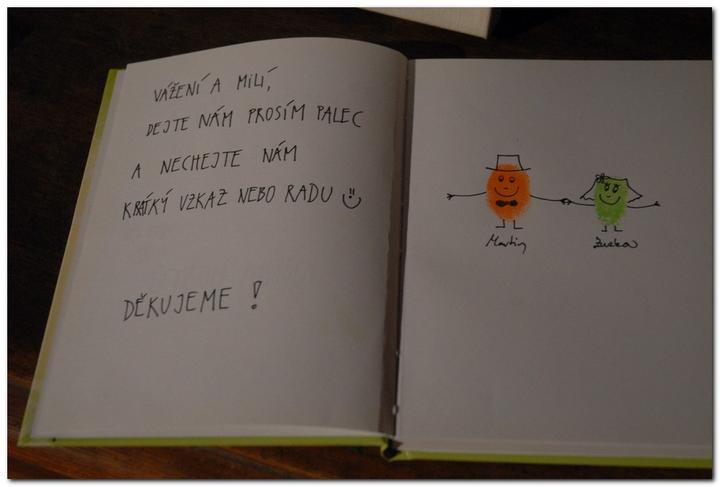 VÁŽENÍ A MILÍ,
DEJTE NÁM PROSÍM PALEC
A NECHEJTE NÁM
KRÁTKÝ VZKAZ NEBO RADU
DĚKUJEME !
Martin
Zuzka